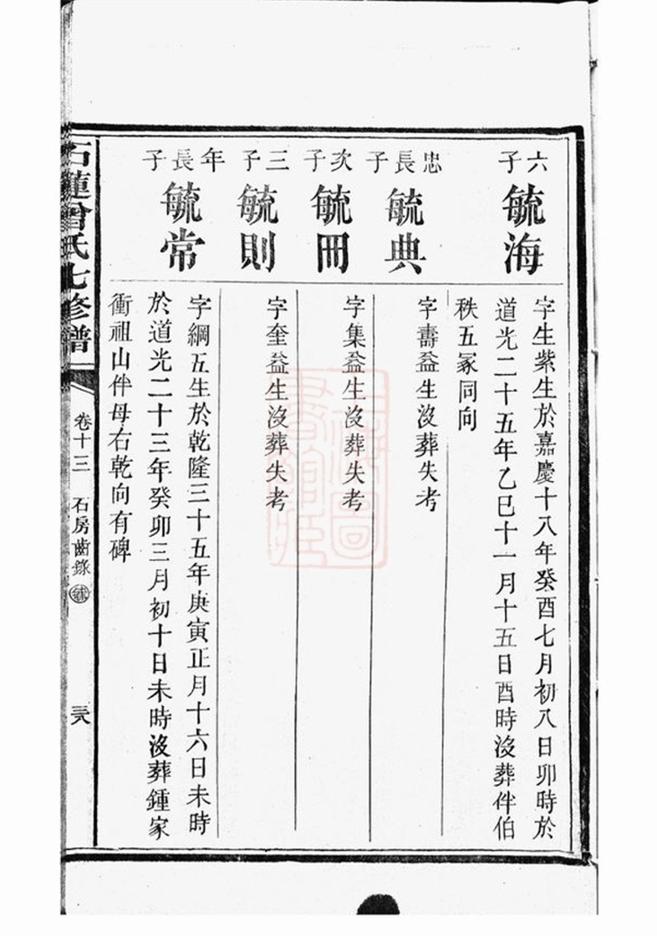 六子
毓海
字生紫生於嘉慶十八年癸酉七月初八日卯時於
道光二十五年乙巳十一月十五日酉時沒葬伴伯
秩五冢同向
忠長子
毓典
字壽益生沒葬失考
次子
毓冊
字集益生沒葬失考
三子
毓則
字奎益生沒葬失考
年長子
毓常
字綱五生於乾隆三十五年庚寅正月十六日未時
於道光二十三年癸卯三月初十日未時沒葬鍾家
衝祖山伴母右乾向有碑
石蓮曾氏七修譜
卷十三
石房齒錄
三八